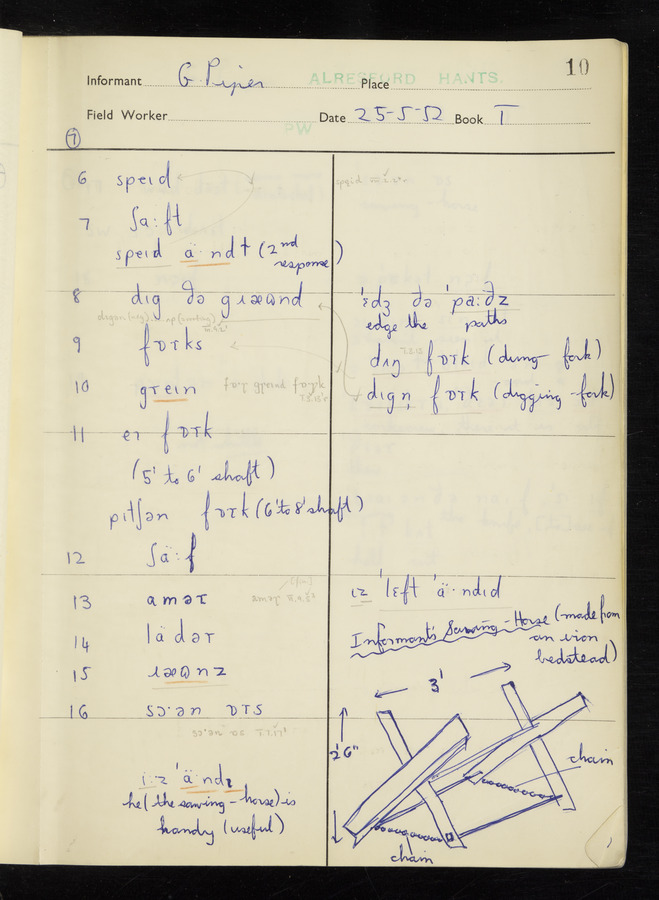 10
Informant G. Piper ALRESFORD HANTS. Place
Field Worker Date 25-5-52 Book I
PW
7
6 speɪd
7 ʃa:ft
speɪd ä·ndɫ (2nd response)
8 dɪg ðə gɹæʊnd
9 fɒɾks
10 gɾeɪn
11 eɪ fɒɾk
(5' to 6' shaft)
pɪtʃən fɒɾk (6' to 8' shaft)
12 ʃä:f
13 aməɾ
14 lädəɾ
15 ɹæʊnz
16 sɔ·ən ɒɾs
i:z 'ä·ndɪ
he (the sawing-horse) is
handy (useful)
'ɛdʒ ðə 'pa:ðz
edge the paths
dʌŋ fɒɾk (dung fork)
dɪgn̩ fɒɾk (digging-fork)
ɪz 'lɛft 'ä·ndɪd
Informant's Sawing-Horse (made from
an iron
bedstead)
3'
2'6"
chain
chain